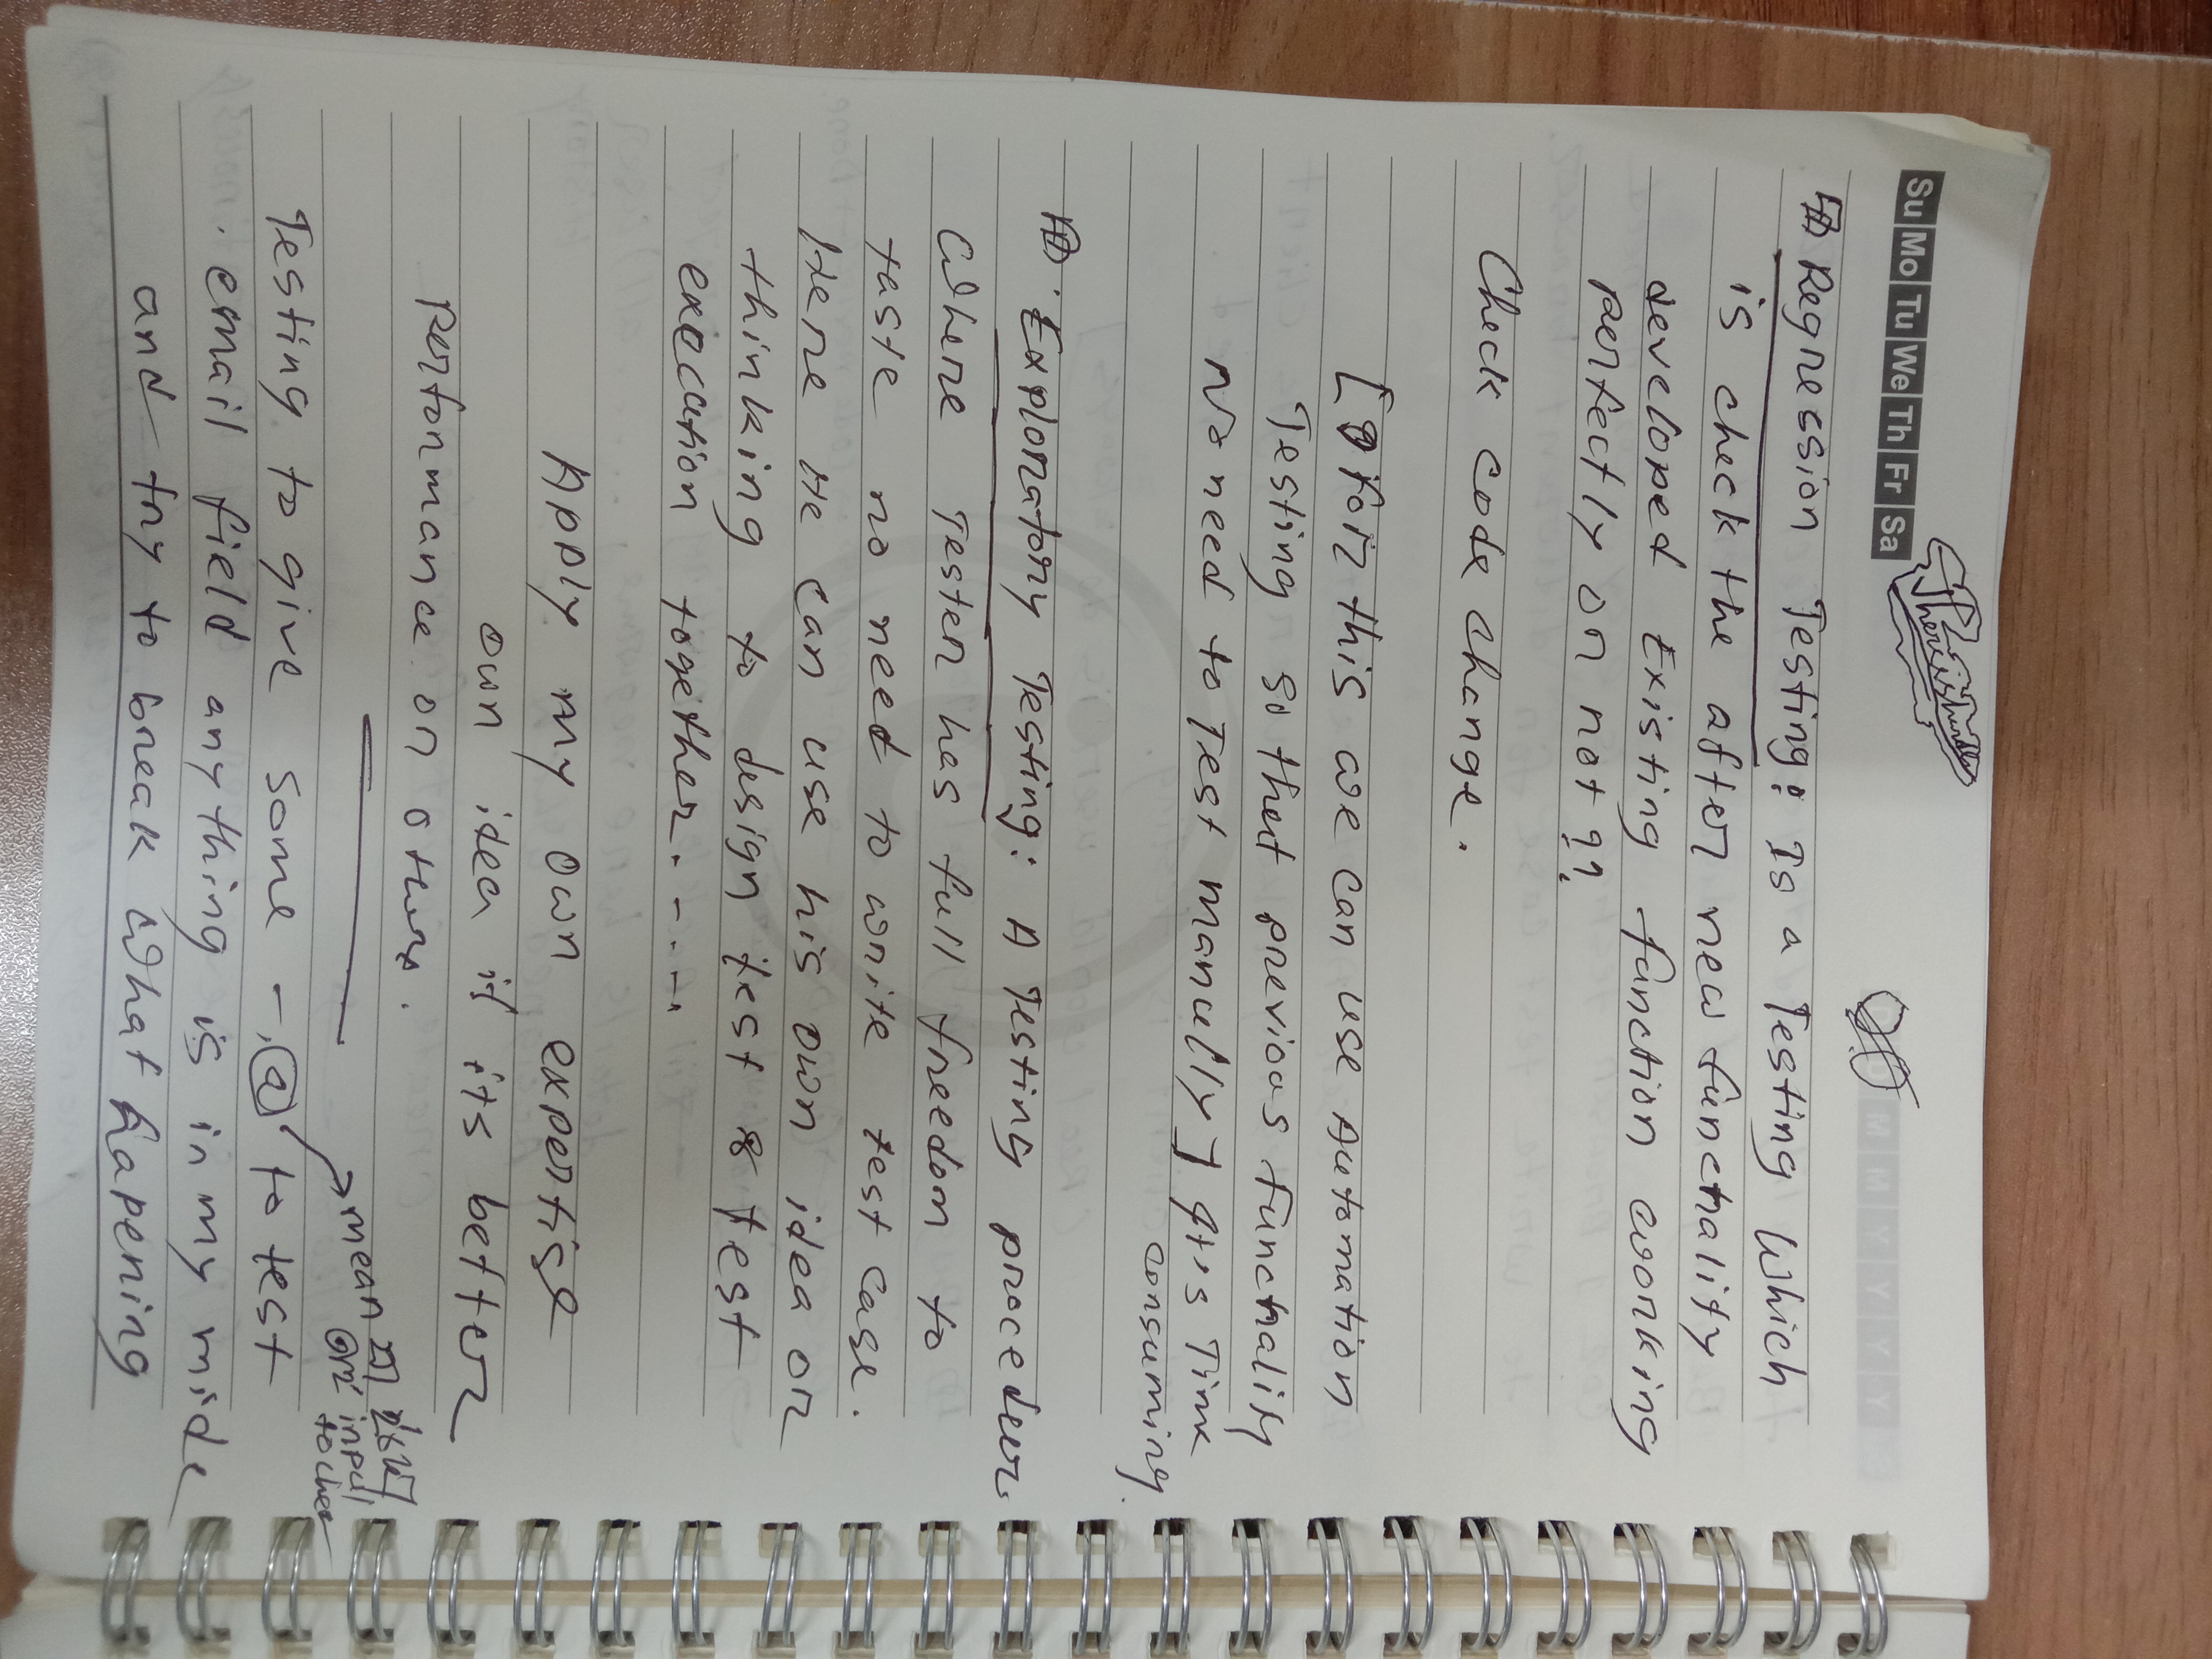 Su Mo Tu We Th Fr Sa
D D M M Y Y Y Y
Regression Testing: Is a Testing Which
is check the after new functnality
developed Existing function working
perfectly or not ??
Check code change.
[ for this we can use Automation
Testing so that previous functnality
No need to Test manually] It's Time
consuming.
Exploratory Testing: A Testing procedur
Where Tester has full freedom to
taste no need to write test case.
Here He can use his own idea or
thinking to design test & test
execution together.....
Apply my own expertise
own idea if its better
performance or others.
mean যা ইচ্ছা
input
to che
Testing to give some -, @ to test
email field anything is in my mide
and try to break what hapening